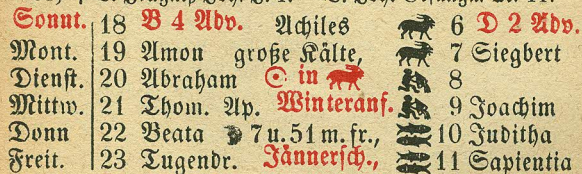 Sonnt. 18 B 4 Adv. Achiles 6 D 2 Adv.
Mont. 19 Amon große Kälte, 7 Siegbert
Dienst. 20 Abraham ☉ in 8
Mittw. 21 Thom. Ap. Winteranf. 9 Joachim
Donn 22 Beata 7 u. 51 m. fr., 10 Juditha
Freit. 23 Tugendr. Jännersch., 11 Sapientia